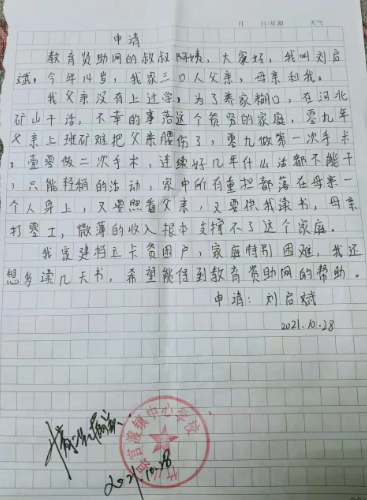 月 日/星期 天气
申请
教育资助网的叔叔阿姨,大家好,我叫刘启
斌,今年14岁,我家三口人父亲,母亲和我。
我父亲没有上过学,为了养家糊口,在河北
矿山干活,不幸的事落这个贫贤的家庭,零九年
父亲上班矿难把父亲腰伤了,零九做第一次手术
,壹零做二次手术,连续好几年什么活都不能干
,只能轻梢的活动,家中所有重担都落在母亲一
个人身上,又要照看父亲,又要供我读书,母亲
打零工,微薄的收入根本支撑不了这个家庭。
我家建档立卡贫困户,家庭特别困难,我还
想多读几天书,希望能得到教育资助网的帮助。
申请:刘启斌
2021.10.28
官渡镇中心学校
2021.10.28